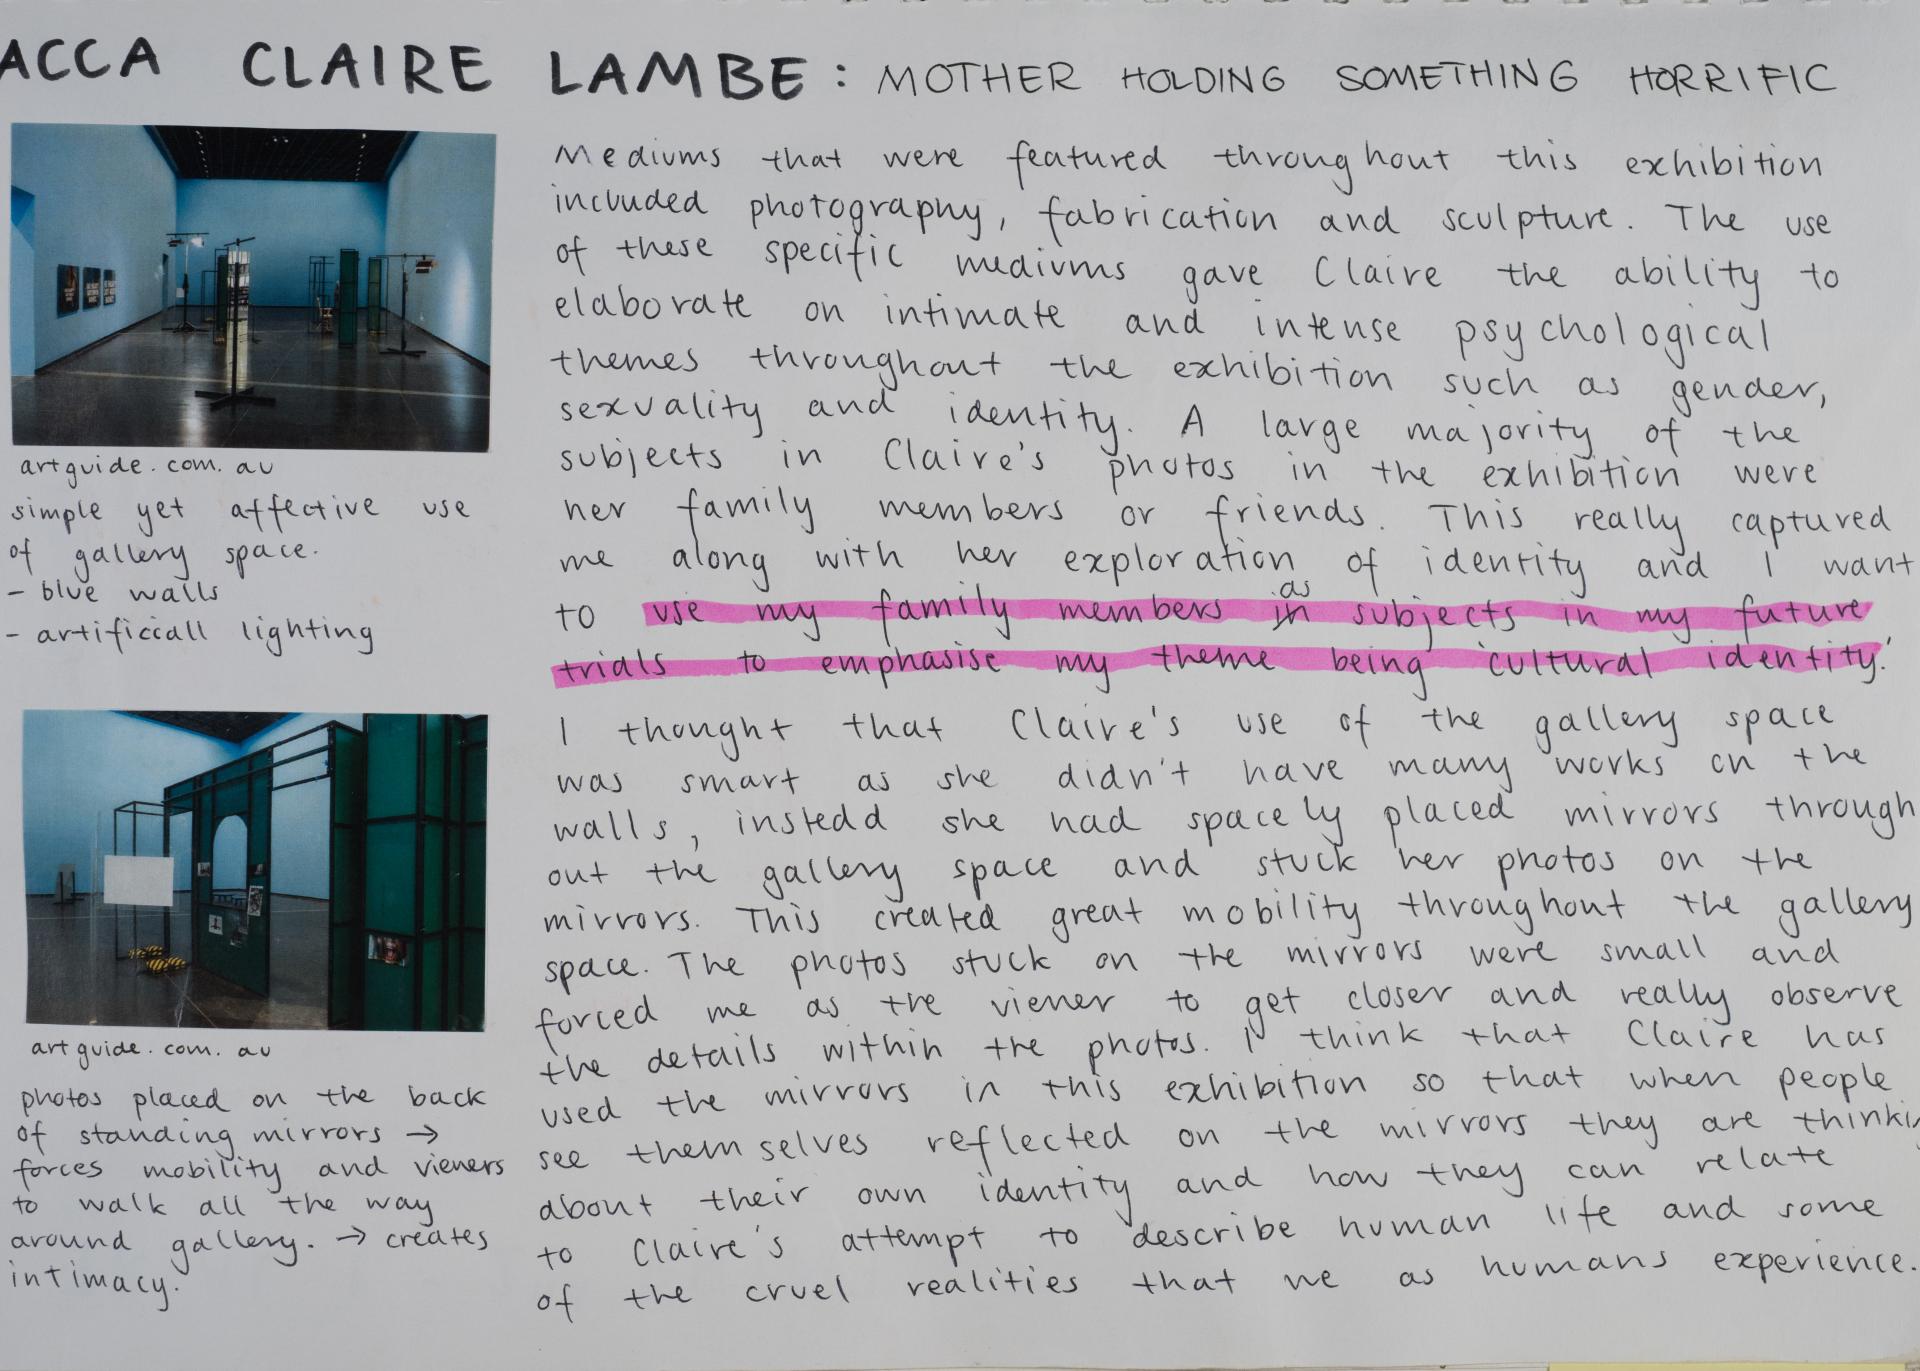 ACCA CLAIRE LAMBE: MOTHER HOLDING SOMETHING HORRIFIC
artguide.com.au
simple yet affective use
of gallery space.
- blue walls
- artificiall lighting
artguide.com.au
photos placed on the back
of standing mirrors →
forces mobility and vieners
to walk all the way
around gallery. → creates
intimacy.
Mediums that were featured throughout this exhibition
included photography, fabrication and sculpture. The use
of these specific mediums gave Claire the ability to
elaborate on intimate and intense psychological
themes throughout the exhibition such as gender,
sexuality and identity. A large majority of the
subjects in Claire's photos in the exhibition were
her family members or friends. This really captured
me along with her exploration of identity and I want
to use my family members as subjects in my future
trials to emphasise my theme being 'cultural identity.'
I thought that Claire's use of the gallery space
was smart as she didn't have many works on the
walls, instedd she had spacely placed mirrors through
out the gallery space and stuck her photos on the
mirrors. This created great mobility throughout the gallery
space. The photos stuck on the mirrors were small and
forced me as the viener to get closer and really observe
the details within the photos. I think that Claire has
used the mirrors in this exhibition so that when people
see themselves reflected on the mirrors they are thinki
about their own identity and how they can relate
to Claire's attempt to describe human life and some
of the cruel realities that we as humans experience.